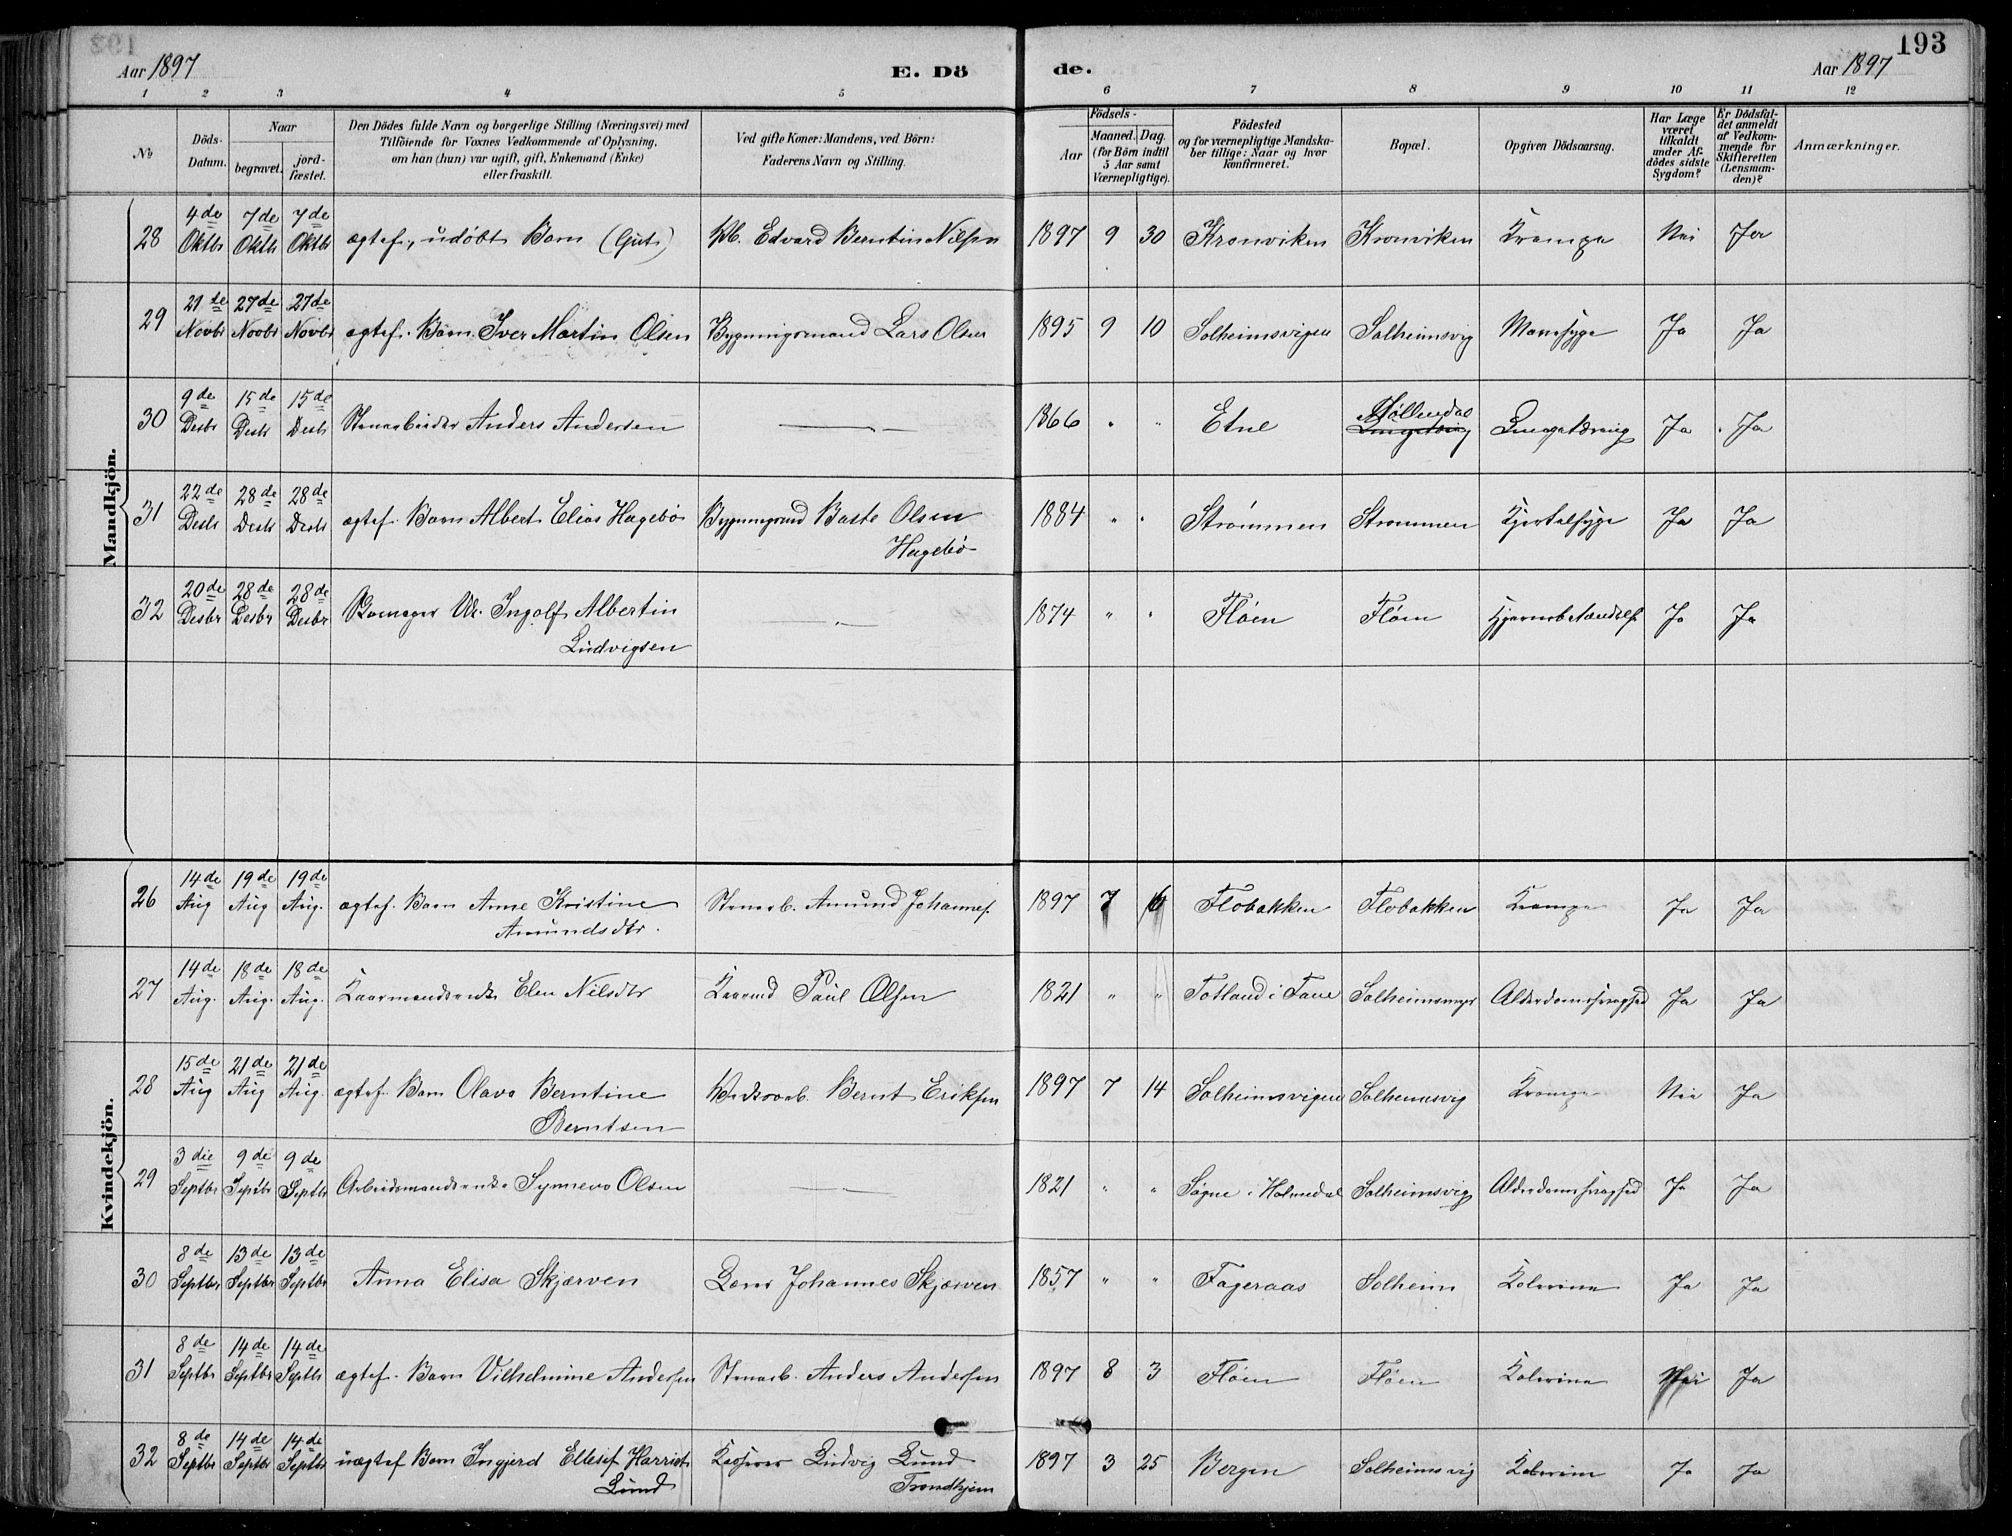 193
Aar 1897 E. Dö de. Aar 1897
1 2 3 4 5 6 7 8 9 10 11 12
No. Döds-Datum. Naar begravet. jord-fæstet. Den Dödes fulde Navn og borgerlige Stilling (Næringsvei) med Tilföiende for Voxnes Vedkommende af Oplysning, om han (hun) var ugift, gift, Enkemand (Enke) eller fraskilt. Ved gifte Koner: Mandens, ved Börn: Faderens Navn og Stilling. Födsels- Aar Maaned. Dag. (for Börn indtil 5 Aar samt Værnepligtige). Födested og for værnepligtige Mandskaber tillige: Naar og hvor konfirmeret. Bopæl. Opgiven Dödsaarsag. Har Læge været tilkaldt under Afdödes sidste Sygdom? Er Dödsfaldet anmeldt af Vedkommende for Skifteretten (Lensmanden)? Anmærkninger.
Mandkjön.
28 4de Oktb 7de Oktb 7de Oktb ægtef., udöbt Barn (Gut) Edvard Berntin Nilsen 1897 9 30 Kronviken Kronviken Krampe Nei Ja
29 21de Novbr 27de Novbr 27de Novbr ægtef. Barn Iver Martin Olsen Bygningsmand Lars Olsen 1895 9 10 Solheimsvigen Solheimsvig Mavesyge Ja Ja
30 9de Desbr 15de Desb 15de Desb Stenarbeider Anders Andersen — 1866 " " Etne Möllendal Lungetæring Ja Ja
31 22de Desb 28de Desb 28de Desb ægtef. Barn Albert Elias Hagebö Bygningsmand Baste Olsen 1884 " " Strömmen Strömmen Kjertelsyge Ja Ja
Hagebö
32 20de Desbr 28de Desbr 28de Desbr Ingolf Albertin — 1874 " " Flöen Flöen Ja Ja
Ludvigsen
Kvindekjön.
26 14de Aug 19de Aug 19de Aug. ægtef. Barn Anne Kristine Stenarb. Amund Johannes. 1897 7 6 Flobakken Flobakken Krampe Ja Ja
Amundsdtr.
27 14de Aug. 18de Aug. 18de Aug. Kaarmandsenke Elen Nilsdtr Kaarmd Paul Olsen 1821 " " Totland i Fane Solheimsmyr Alderdomssvaghed Ja Ja
28 15de Aug 21de Aug 21de Aug. ægtef. Barn Olava Berntine Bernt Eriksen 1897 7 14 Solheimsvigen Solheimsvig Krampe Nei Ja
Berntsen
29 3die Septbr 9de Septbr 9de Septbr Arbeidsmandsenke Synneva Olsen — 1821 " " Sögne i Holmedal Solheimsvig Alderdomssvaghed Ja Ja
30 8de Septbr 13de Septbr 13de Septbr Anna Elisa Skjærven Johannes Skjærven 1857 " " Fageraas Solheim Kolerine Ja Ja
31 8de Septbr 14de Septbr 14de Septb ægtef. Barn Vilhelmine Andersen Stenarb. Anders Andersen 1897 8 3 Flöen Flöen Kolerine Nei Ja
32 8de Septbr 14de Septbr 14de Septbr uægtef Barn Ingjerd Ellesif Harriet Ludvig Lund 1897 3 25 Bergen Solheimsvig Kolerine Ja Ja
Lund Trondhjem